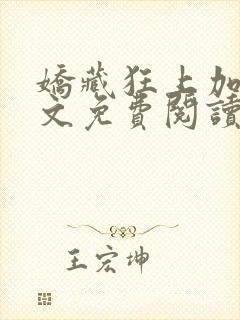 嬌藏狂上加
文免費閱讀
王宏坤